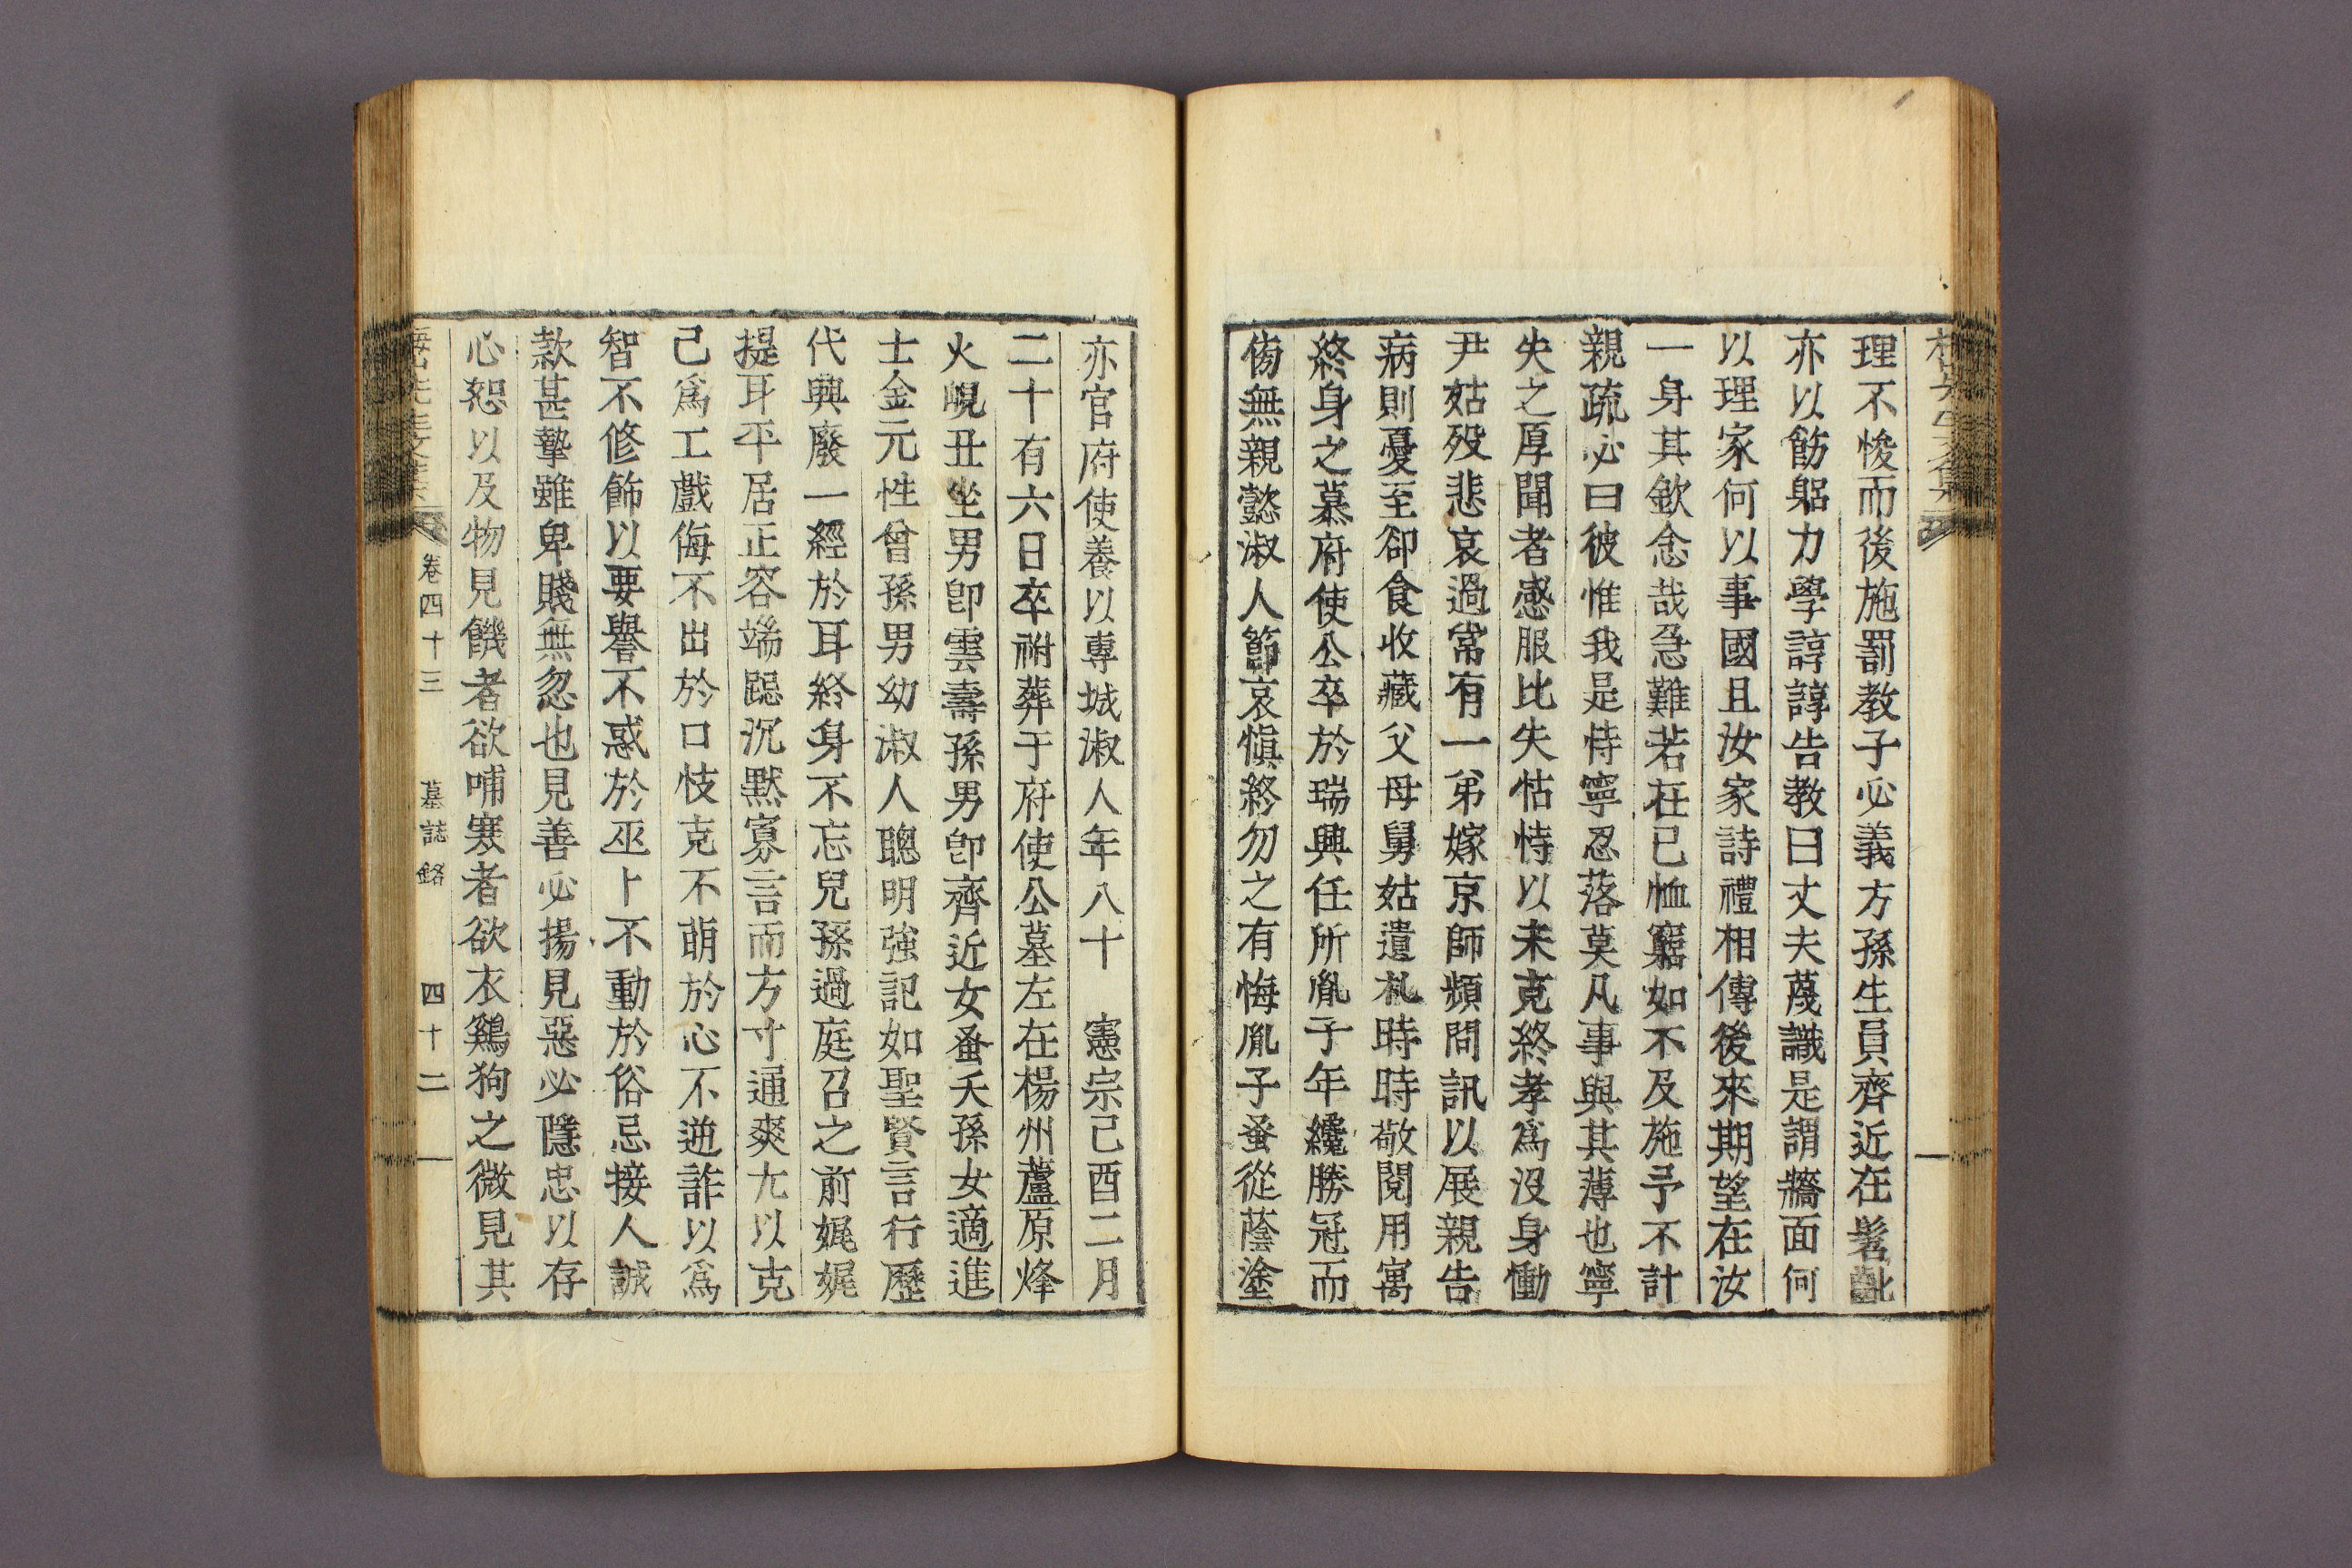 理不悛而後施罰教子必義方孫生員齊近在髫齔
亦以飭躬力學諄諄告教曰丈夫蔑識是謂牆面何
以理家何以事國且汝家詩禮相傳後來期望在汝
一身其欽念哉急難若在已恤窮如不及施予不計
親疏必曰彼惟我是恃寧忍落莫凡事與其薄也寧
失之厚聞者感服比失怙恃以未克終孝爲沒身慟
尹姑歿悲哀過常有一弟嫁京師頻問訊以展親告
病則憂至卻食收藏父母舅姑遺札時時敬閱用寓
終身之慕府使公卒於瑞興任所胤子年纔勝冠而
傍無親懿淑人節哀愼終勿之有悔胤子蚤從蔭塗
亦官府使養以專城淑人年八十 憲宗己酉二月
二十有六日卒祔葬于府使公墓左在楊州蘆原烽
火峴丑坐男卽雲壽孫男卽齊近女蚤夭孫女適進
士金元性曾孫男幼淑人聰明強記如聖賢言行歷
代興廢一經於耳終身不忘兒孫過庭召之前娓娓
提耳平居正容端跽沉默寡言而方寸通爽尤以克
己爲工戲侮不出於口忮克不萌於心不逆詐以爲
智不修飾以要譽不惑於巫卜不動於俗忌接人誠
款甚摯雖卑賤無忽也見善必揚見惡必隱忠以存
心恕以及物見饑者欲哺寒者欲衣鷄狗之微見其
卷四十三 墓誌銘 四十二